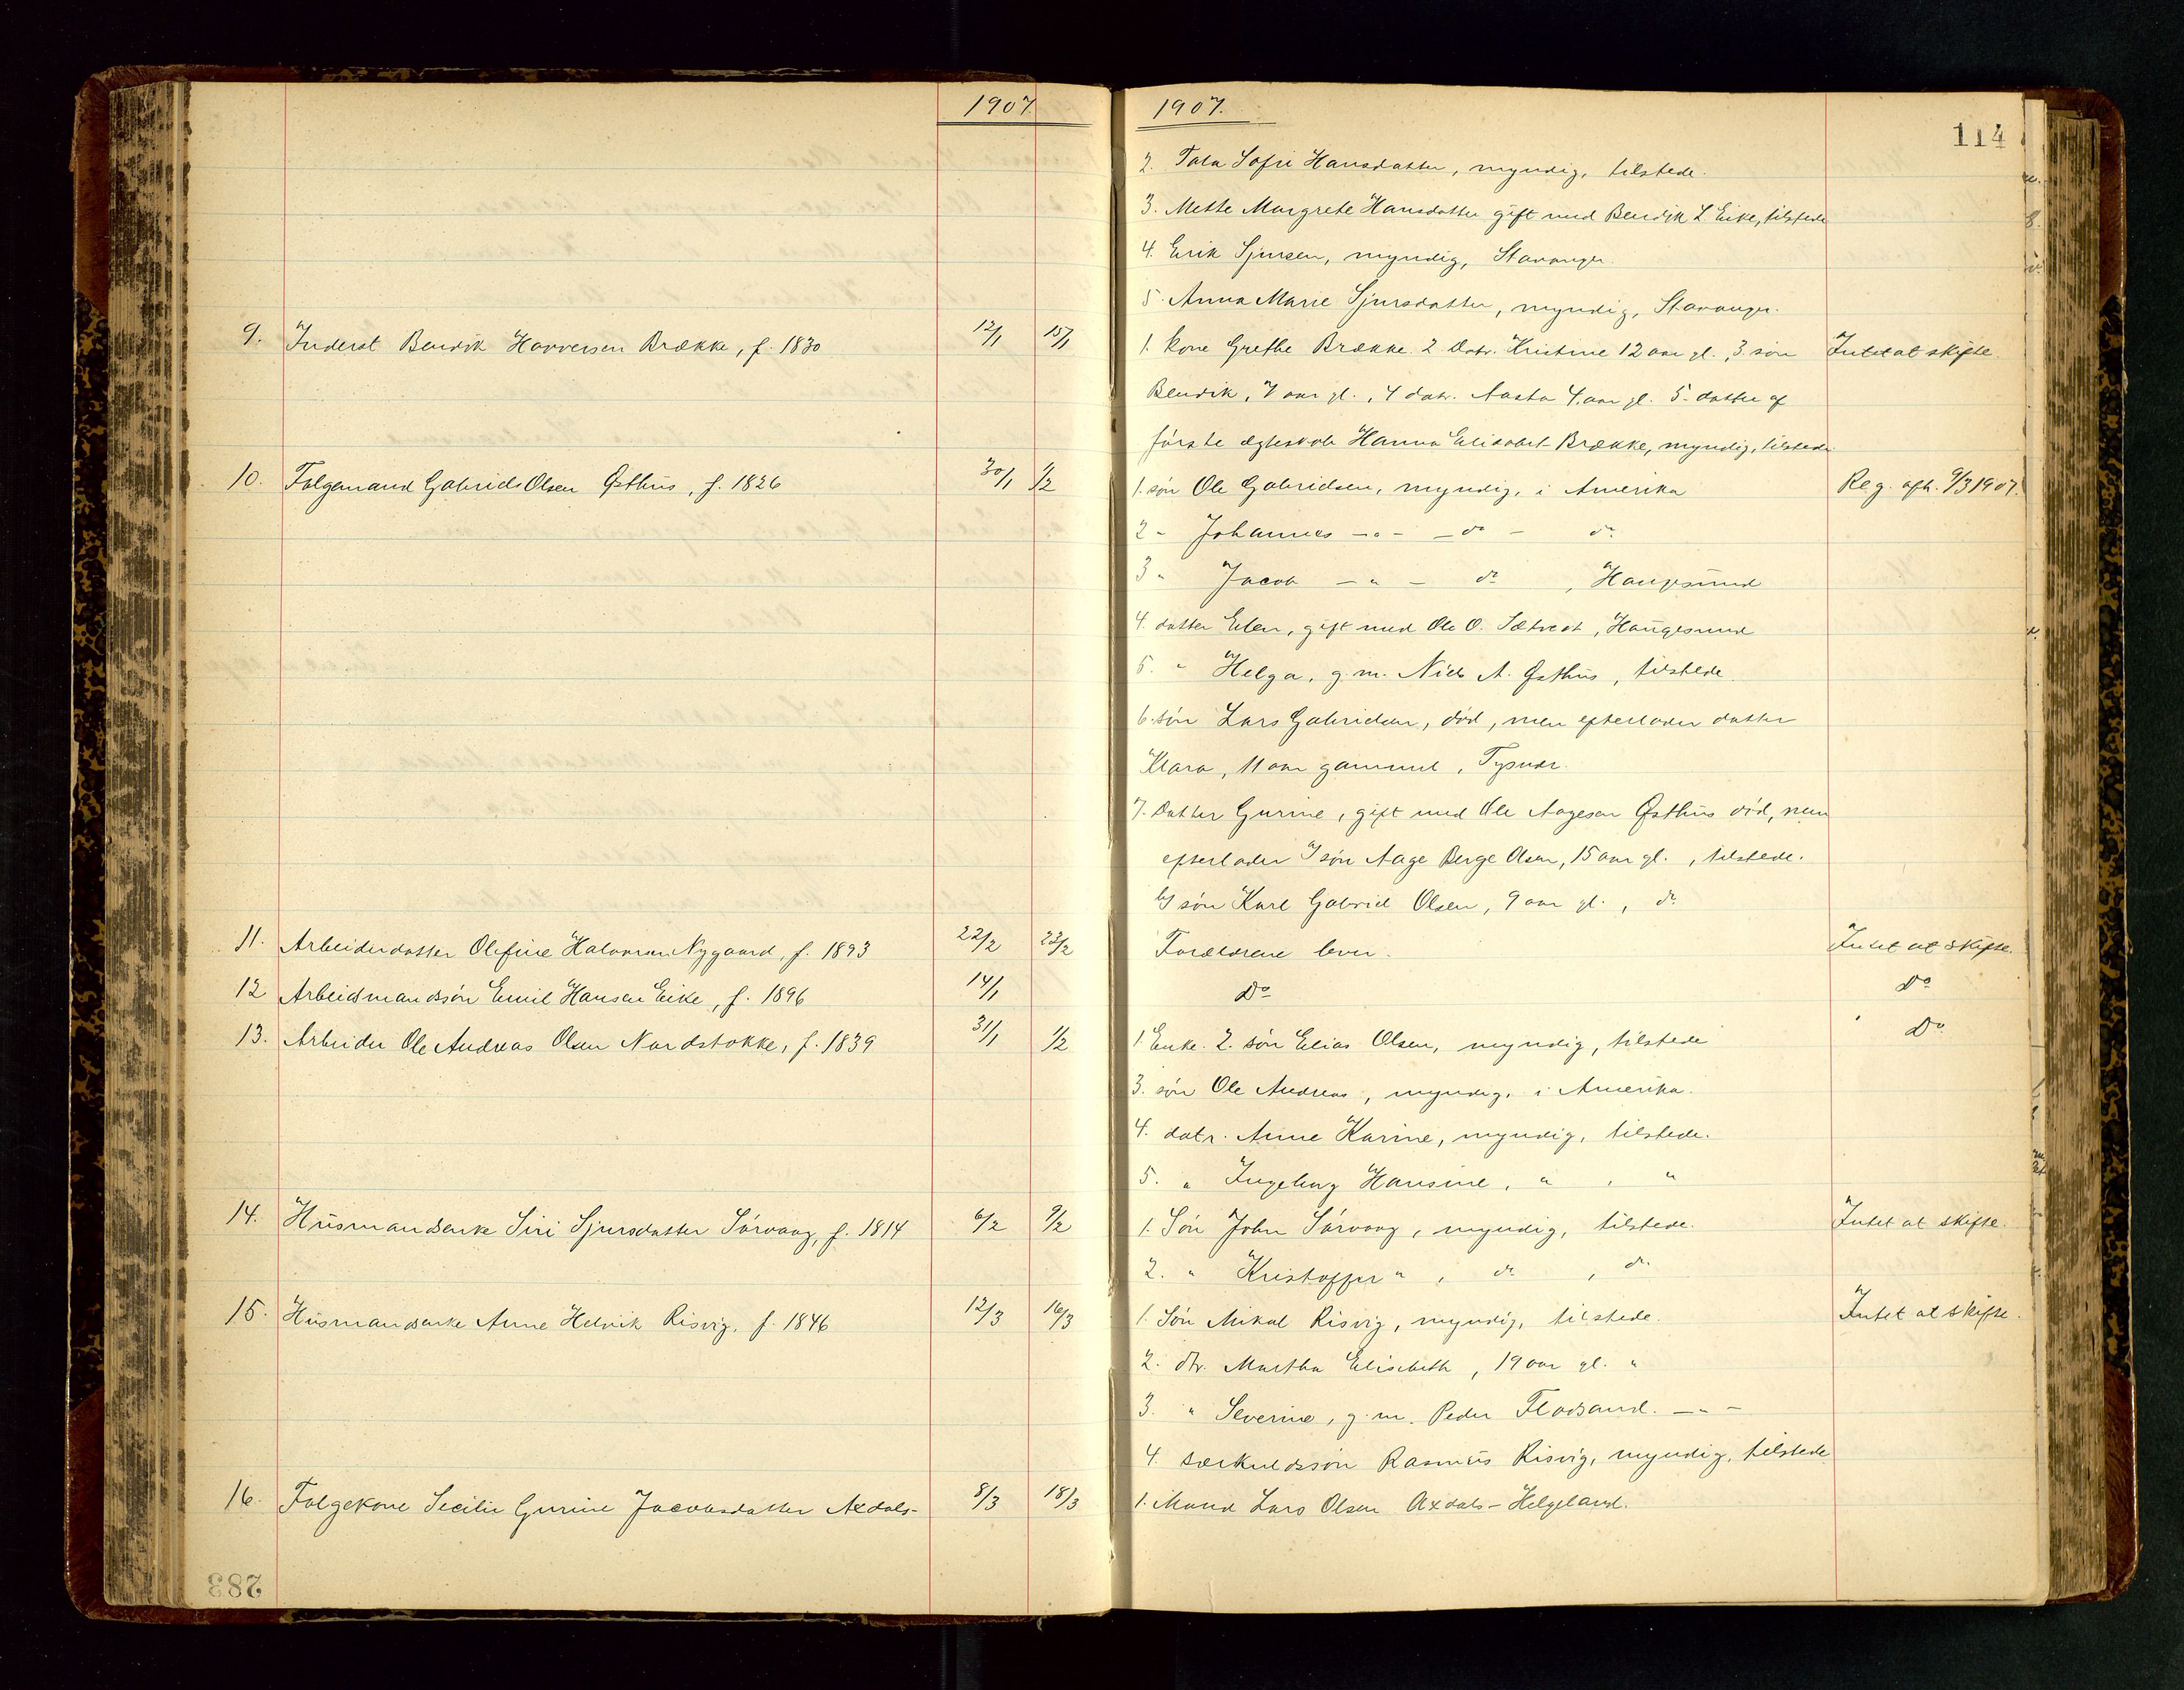 1907.
1907.
114
2. Tala Sofie Hansdatter, myndig, tilstede.
3. Mette Margrete Hansdatter gift med Bendik L Eike, tilstede
4. Erik Sjursen, myndig, Stavanger.
5. Anna Marie Sjursdatter, myndig, Stavanger.
9. Inderst Bendik Halversen Brække, f. 1830 12/1 15/1 1. Kone Grethe Brække. 2 Datr. Kristine 12 aar gl., 3. søn Intet at skifte.
Bendik, 7 aar gl., 4 datr. Aasta 4 aar gl. 5. datter af
første ægteskab Hanna Elisabet Brække, myndig, tilstede.
10. Folgemand Gabriel Olsen Østhus, f. 1826 30/1 1/2 1. søn Ole Gabrielsen, myndig, i Amerika Reg. afh. 9/3 1907.
2 - Johannes -"- - do - do
3 " Jacob - " - do , Haugesund
4. datter Elen, gift med Ole O. Sætvedt, Haugesund
5. " Helga, g.m. Niels A. Østhus, tilstede.
6. søn Lars Gabrielsen, død, men efterlader datter
Klara, 11 aar gammel, Tysvær.
7. Datter Gurine, gift med Ole Aagesen Østhus død, men
efterlader a) søn Aage Berge Olsen, 15 aar gl., tilstede.
b) søn Karl Gabriel Olsen, 9 aar gl., do
11. Arbeiderdatter Olefine Halvorsen Nygaard, f. 1893 22/2 23/2 Forældrene lever. Intet at skifte.
12 Arbeidsmandssøn Emil Hansen Eike, f. 1896 14/1 Do Do
13. Arbeider Ole Andreas Olsen Nordstokke, f. 1839 31/1 1/2 1 Enke. 2. søn Elias Olsen, myndig, tilstede Do
3. søn Ole Andreas, myndig, i Amerika.
4. datr. Anne Karine, myndig, tilstede.
5. " Ingeborg Hansine, " , "
14. Husmandsenke Siri Sjursdatter Sørvaag, f. 1814 6/2 9/2 1. Søn John Sørvaag, myndig, tilstede. Intet at skifte.
2. " Kristoffer " , do , do
15. Husmandsenke Anne Helvik Risvig, f. 1846 12/3 16/3 1. Søn Mikal Risvig, myndig, tilstede. Intet at skifte.
2. dtr. Martha Elisebeth, 19 aar gl. "
3. " Severine, g.m. Peder Flodsand. -"-
4. særkuldssøn Rasmus Risvig, myndig, tilstede
16. Folgekone Secilie Gurine Jacobsdatter Axdals- 8/3 18/3 1. Mand Lars Olsen Axdals-Helgeland.
283